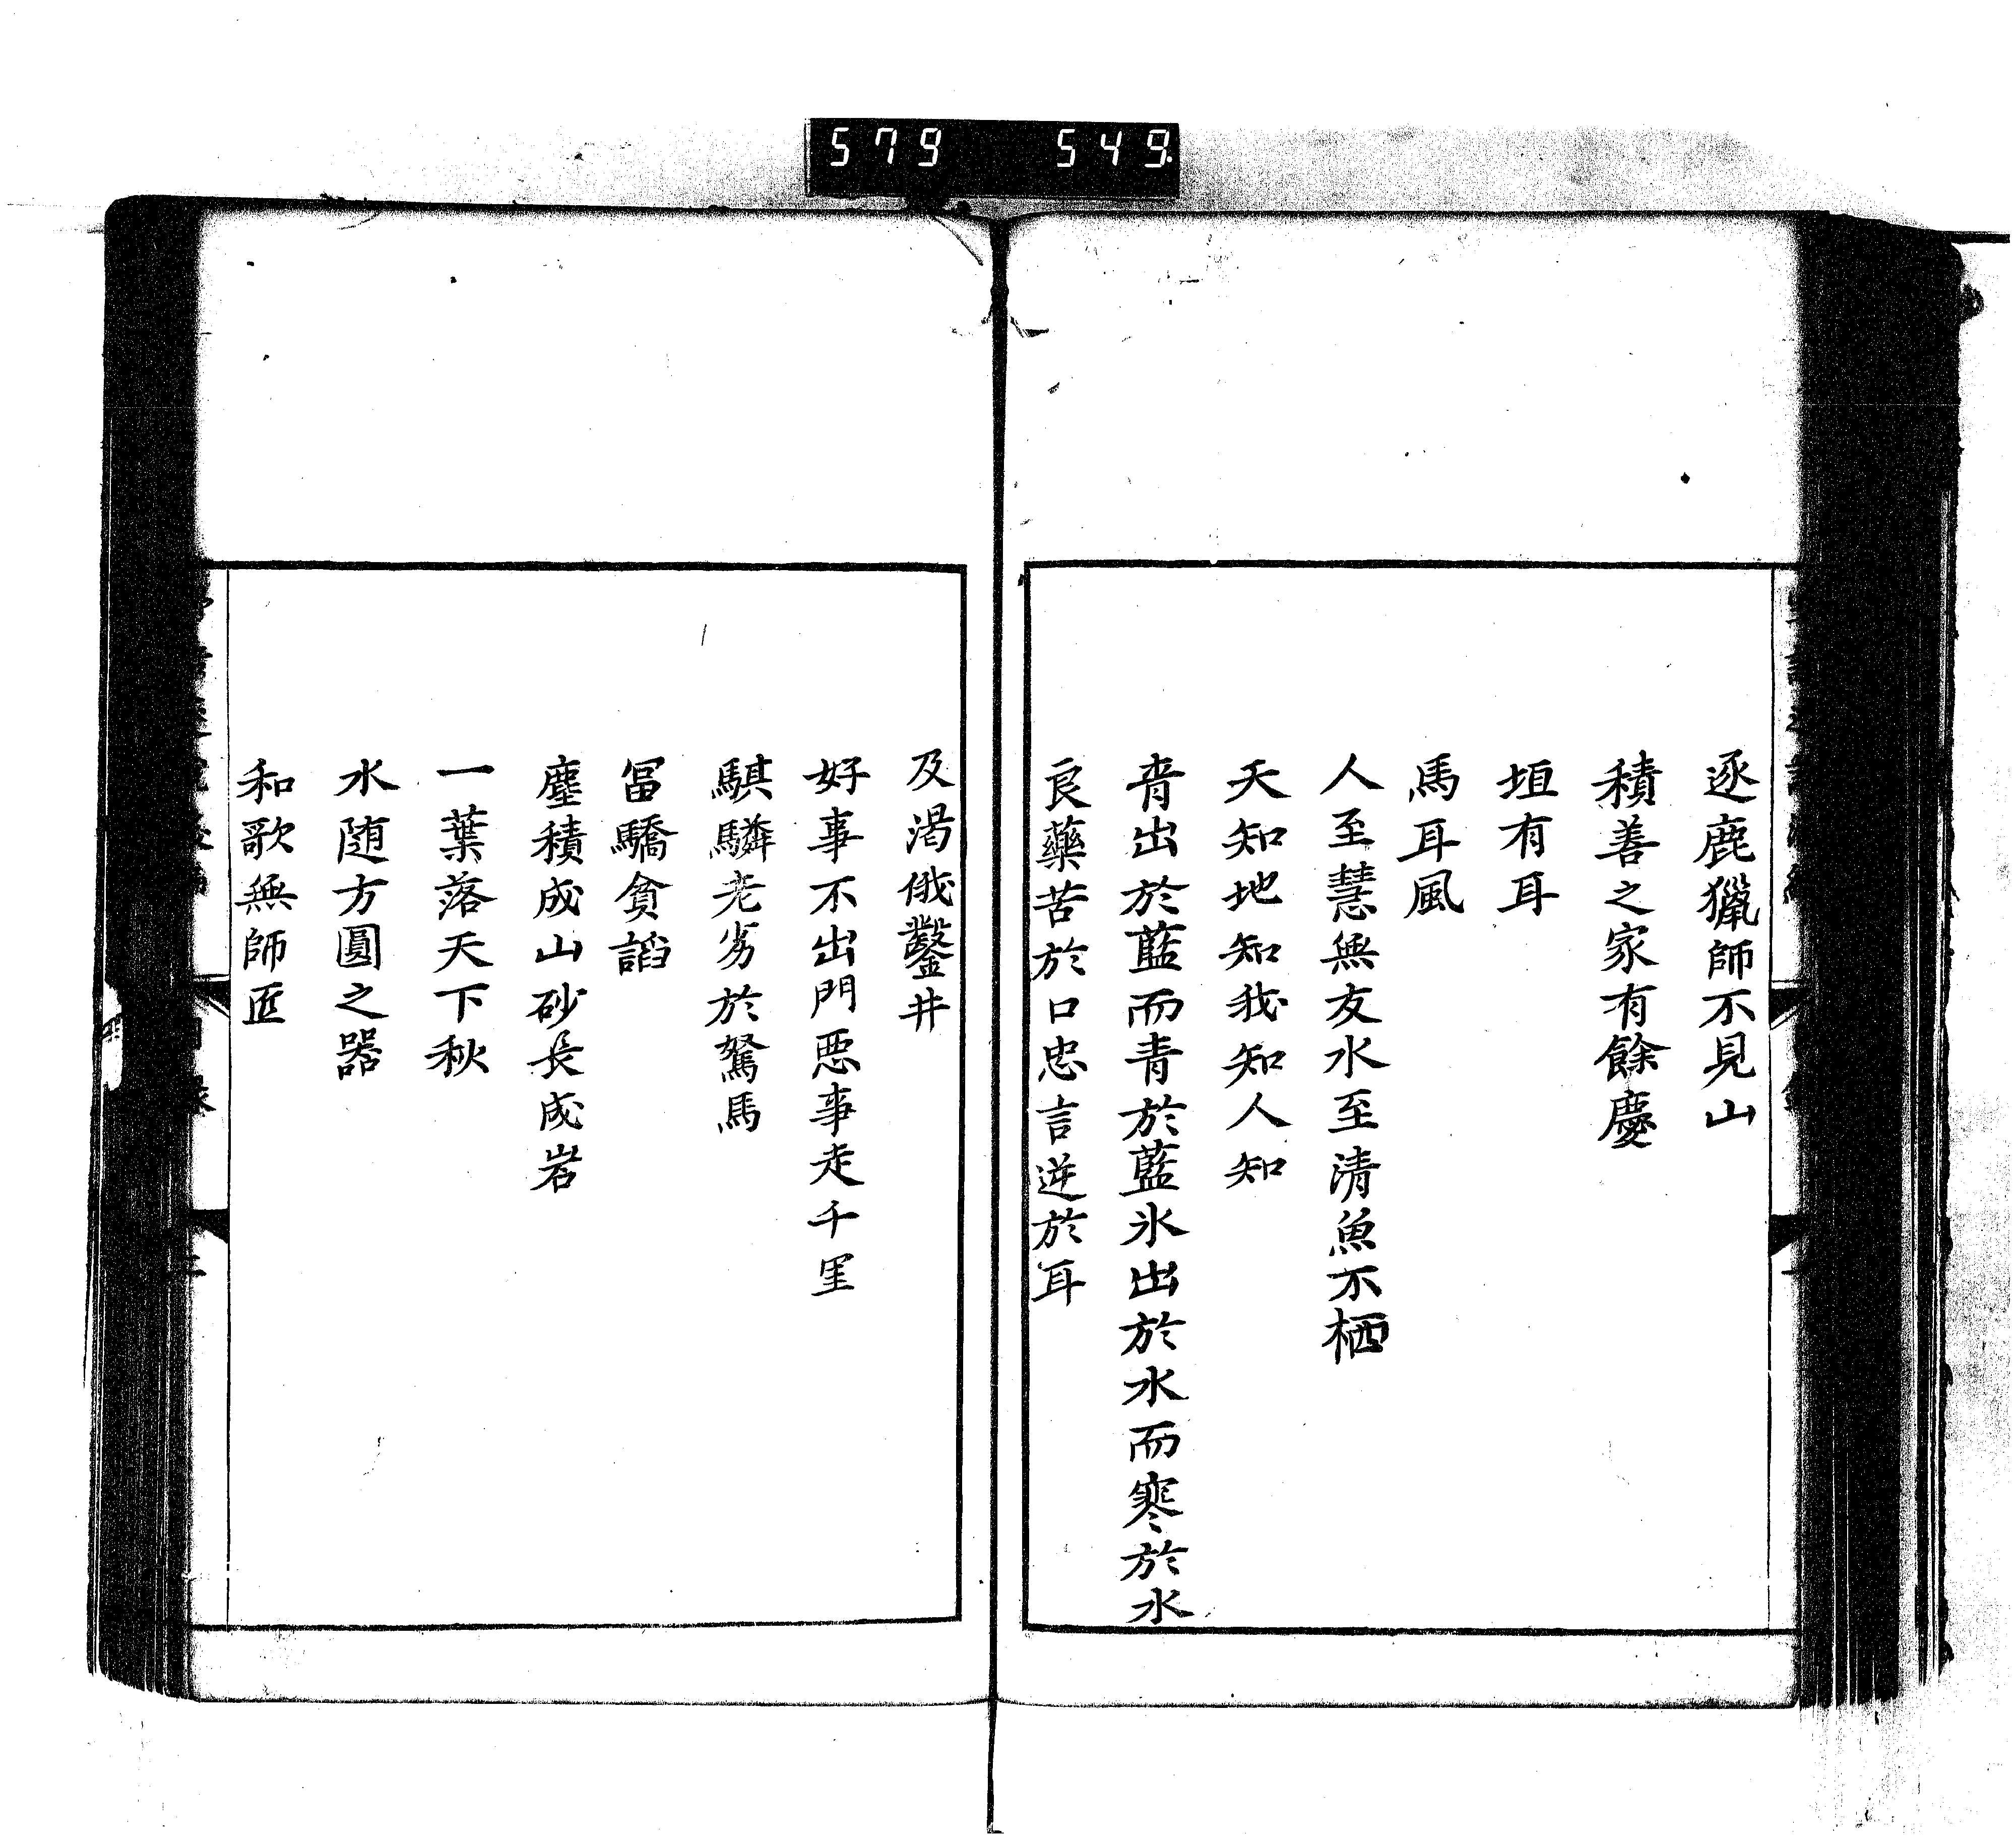 579 549
逐鹿獵師不見山
積善之家有餘慶
垣有耳
馬耳風
人至慧無友水至清魚不栖
天知地知我知人知
青出於藍而青於藍氷出於水而寒於水
良藥苦於口忠言逆於耳
及渇俄鑿井
好事不出門悪事走千里
騏驎老劣於駑馬
冨驕貧謟
塵積成山砂長成岩
一葉落天下秋
水随方圓之器
和歌無師匠